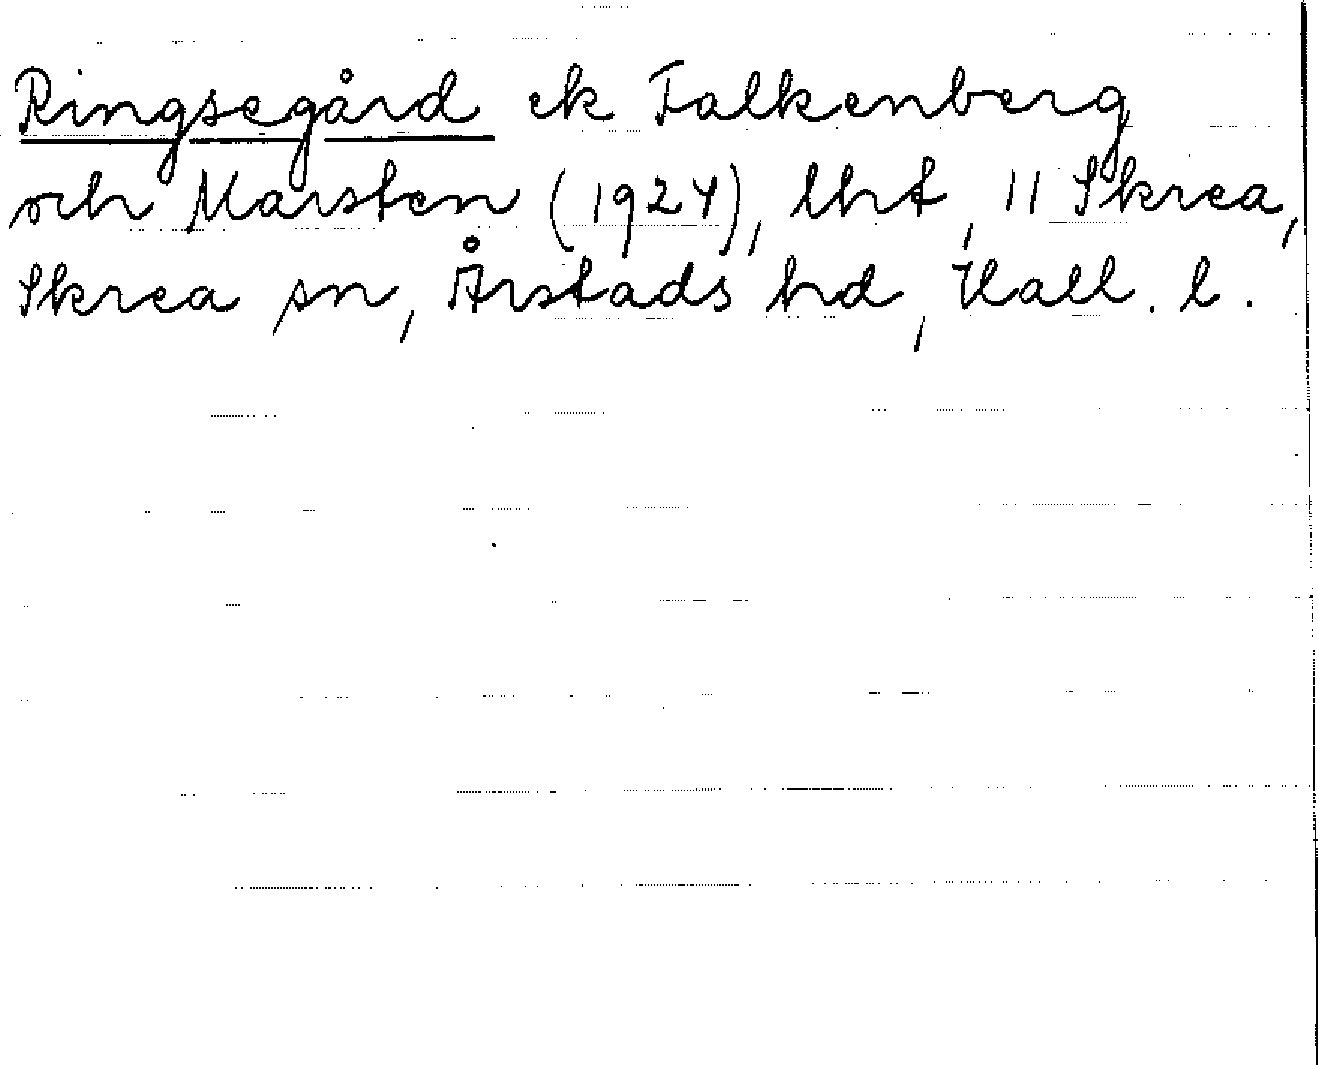 Ringsegård ek Falkenberg
och Marsten (1924), lht, 11 Skrea,
Skrea sn, Årstads hd, Hall. l.